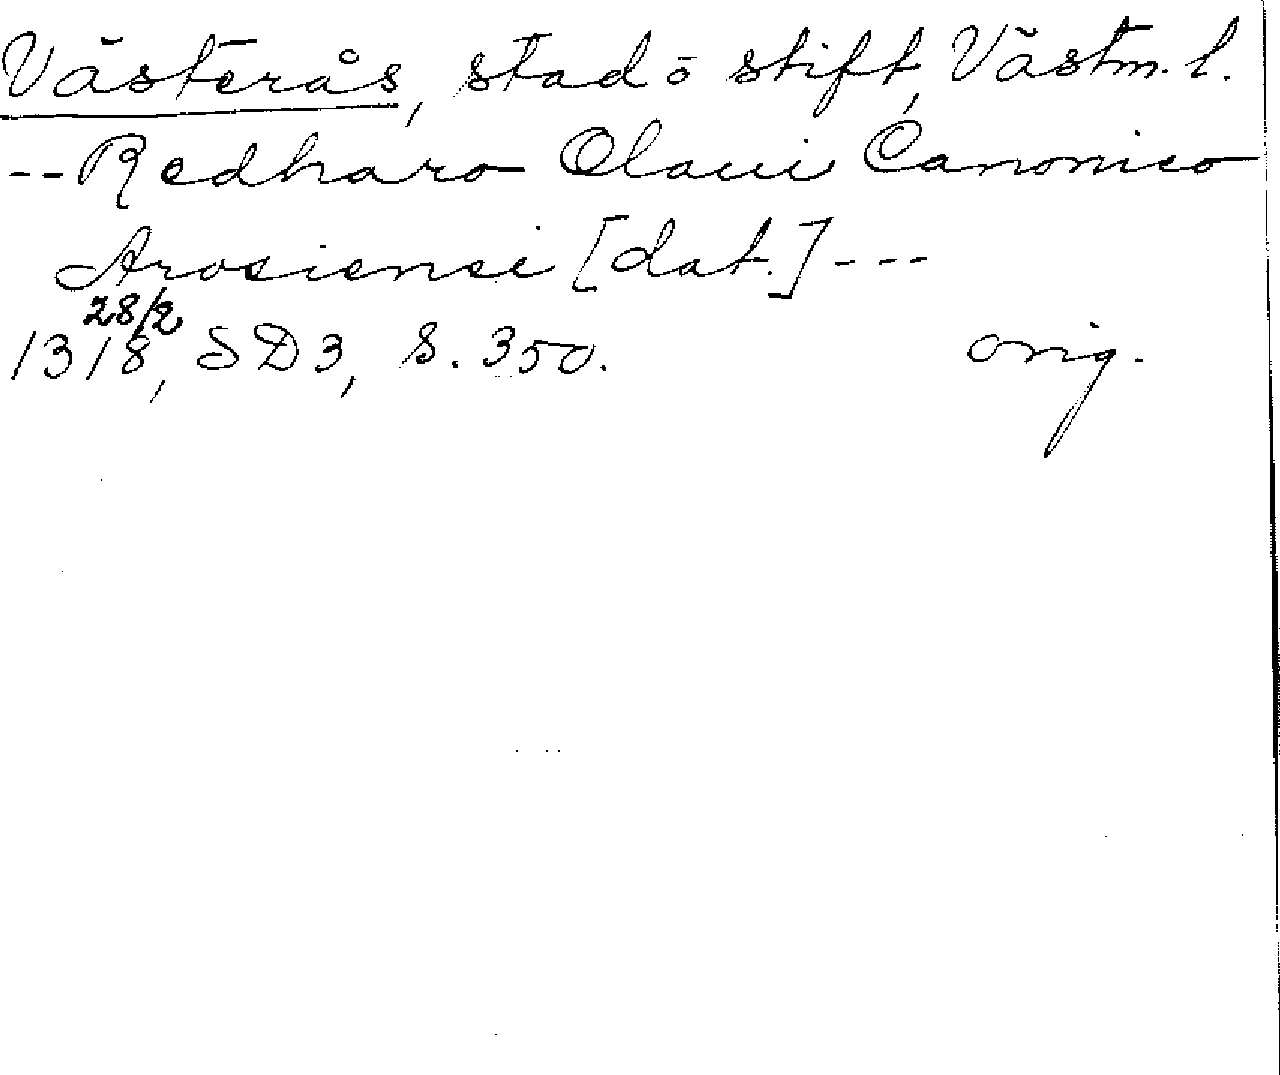 Västerås, stad o stift, Västm. l.
-- Redharo Olaui Canonico
Arosiensi [dat.] ---
28/2
1318, SD3, S. 350. orig.